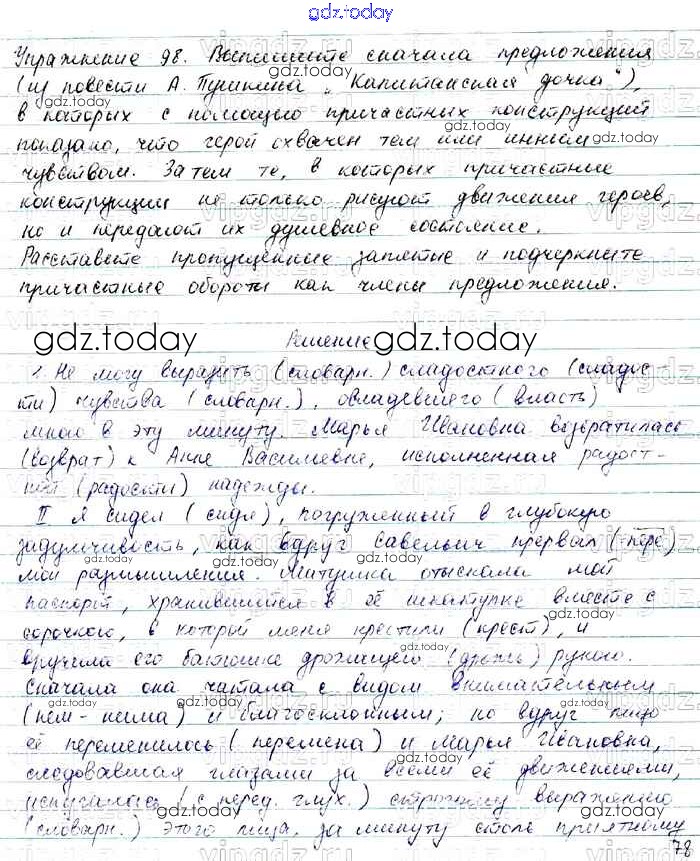 gdz.today
Упражнение 98. Выпишите сначала предложения
(из повести А. Пушкина „Капитанская дочка"),
в которых с помощью причастных конструкций
показано, что герой охвачен тем или иным
чувством. Затем те, в которых причастные
конструкции не только рисуют движения героев,
но и передают их душевное состояние.
Расставьте пропущенные запятые и подчеркните
причастные обороты как члены предложения.
gdz.today Решение gdz.today
1. Не могу выразить (словарн.) сладостного (сладос-
ти) чувства (словарн.), овладевшего (власть)
мною в эту минуту. Марья Ивановна возвратилась
(возврат) к Анне Васильевне, исполненная радост-
ной (радости) надежды.
II Я сидел (сидя), погруженный в глубокую
задумчивость, как вдруг Савельич прервал (пере)
мои размышления. Матушка отыскала мой
паспорт, хранившийся в её шкатулке вместе с
сорочкою, в которой меня крестили (крест), и
вручила его батюшке дрожащею (дрожь) рукою.
Сначала она читала с видом внимательным
и благосклонным; но вдруг лицо
её переменилось (перемена) и Марья Ивановна,
следовавшая глазами за всеми её движениями,
испугалась (с перед. глух.) строгому выражению
(словарн.) этого лица, за минуту столь приятному
78